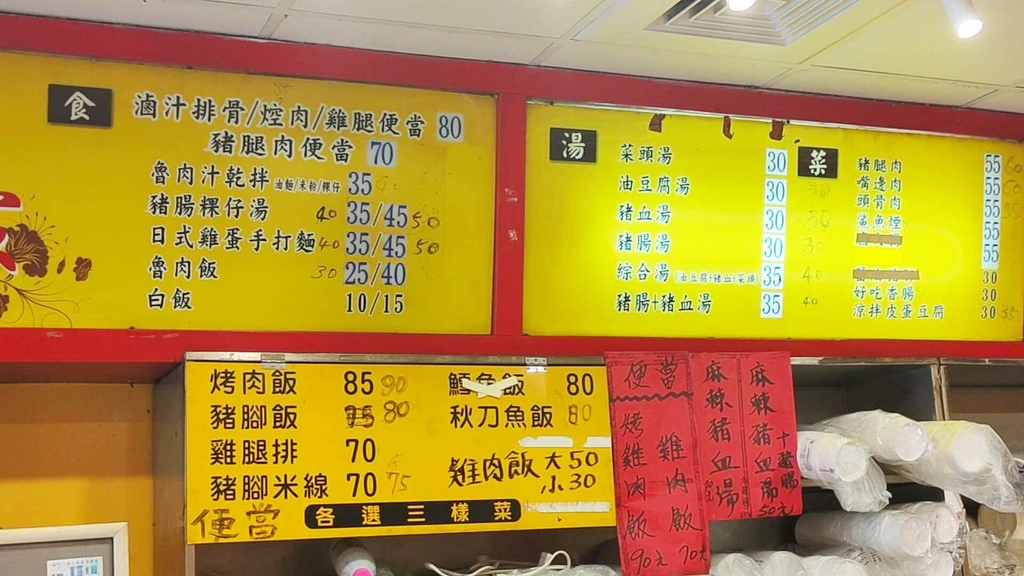 食
滷汁排骨/焢肉/雞腿便當 80
豬腿肉便當 70
魯肉汁乾拌 油麵/米粉/粿仔 35
豬腸粿仔湯 40 35/45 50
日式雞蛋手打麵 40 35/45 50
魯肉飯 30 25/40
白飯 10/15
湯
菜頭湯 30
油豆腐湯 30
豬血湯 30
豬腸湯 30
綜合湯 (油豆腐+豬血+菜頭) 35 40
豬腸+豬血湯 35 40
菜
豬腿肉 55
嘴邊肉 55
頭骨肉 55
鯊魚煙 55
55
30
好吃香腸 30
涼拌皮蛋豆腐 30 35
烤肉飯 85 90
豬腳飯 75 80
雞腿排 70
豬腳米線 70 75
便當
鱈魚飯 80
秋刀魚飯 80
雞肉飯 大50
小30
各選三樣菜
便當
烤雞肉飯 90元
雞肉飯 70元
麻辣豬血湯
麻辣豬血湯 50元
十豬腸